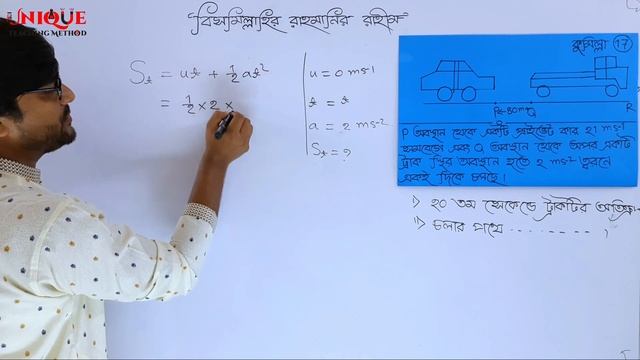 UNIQUE
TEACHING METHOD
বিসমিল্লাহির রাহমানির রাহিম
Sₜ = ut + ½at²
= ½ × 2 ×
u = 0 ms⁻¹
t = t
a = 2 ms⁻²
Sₜ = ?
কুমিল্লা 17
P PQ=80m Q R
P অবস্থান থেকে একটি প্রাইভেট কার 21 ms⁻¹
সমবেগে এবং Q অবস্থান থেকে অপর একটি
ট্রাক স্থির অবস্থান হতে 2 ms⁻² ত্বরণে
একই দিকে চলছে।
i) ২০ তম সেকেন্ডে ট্রাকটির
ii) চলার পথে . . . . . . . . ,